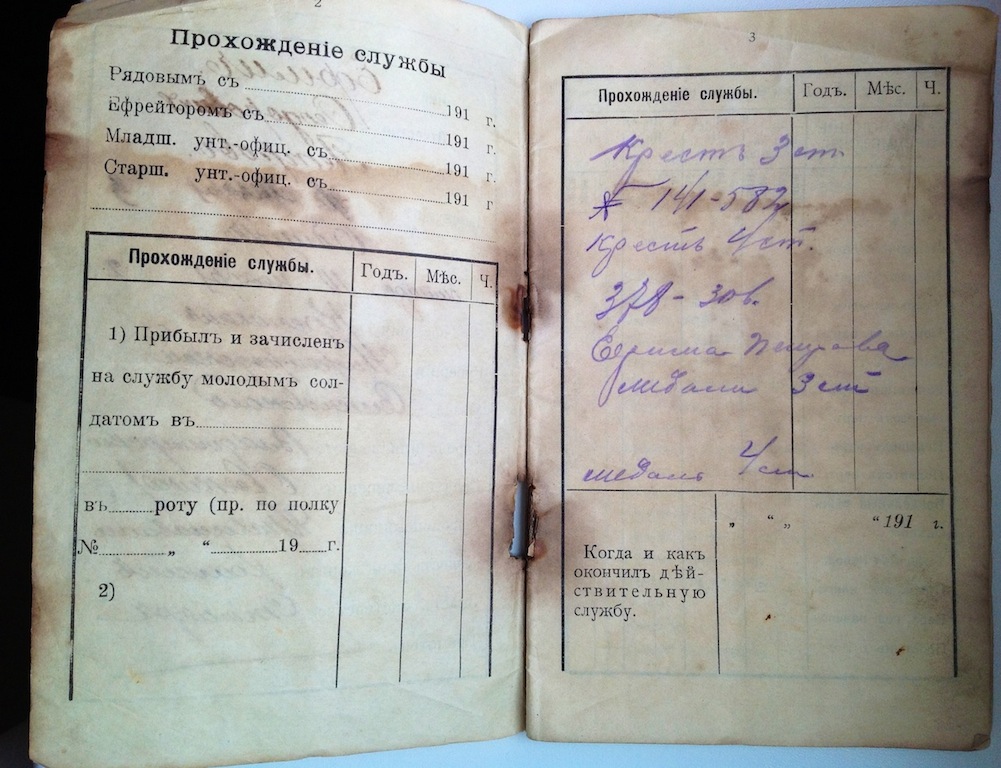 2
Прохожденіе службы
Рядовымъ съ 191 г.
Ефрейторомъ съ 191 г.
Младш. унт.-офиц. съ 191 г.
Старш. унт.-офиц. съ 191 г
Прохожденіе службы. Годъ. Мѣс. Ч.
1) Прибылъ и зачисленъ
на службу молодымъ сол-
датомъ въ
въ роту (пр. по полку
№ „ “ 19 г.
2)
3
Прохожденіе службы. Годъ. Мѣс. Ч.
Крестъ 3 ст.
№ 141-582
Крестъ 4 ст.
378-306.
медали 3 ст
медаль 4 ст
„ “ „ “ 191 г.
Когда и какъ
окончилъ дѣй-
ствительную
службу.